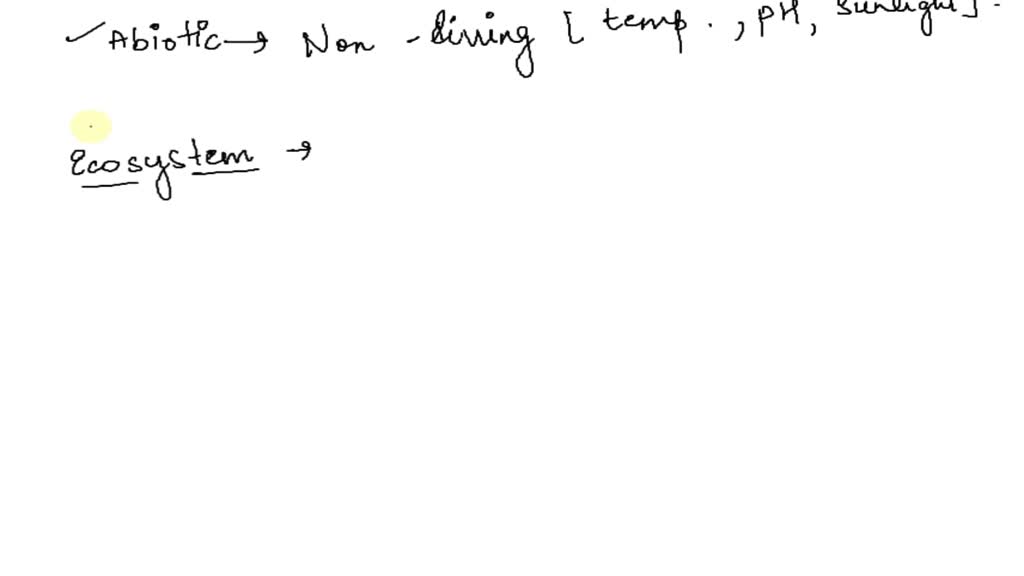 ✓ Abiotic → Non - living [ temp. , PH, sunlight ] .
Ecosystem →